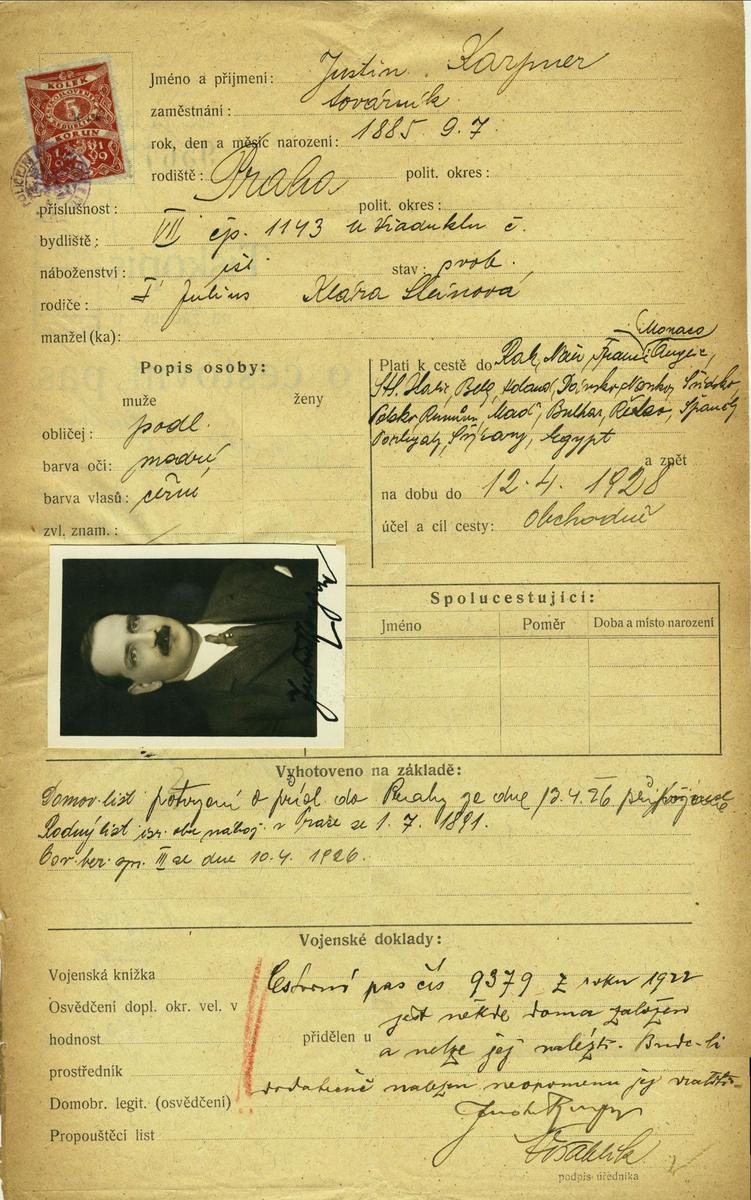 KOLEK
5
KORUN
Jméno a příjmení: Justin Karpner
zaměstnání: továrník
rok, den a měsíc narození: 1885 9.7.
rodiště: Praha polit. okres:
příslušnost: polit. okres:
bydliště: VII čp. 1143 U Viaduktu č.
náboženství: isr. stav: svob.
rodiče: Julius Klára Steinová
manžel (ka):
Popis osoby:
muže ženy
obličej: podl.
barva očí: modré
barva vlasů: černé
zvl. znam.:
Monaco
Platí k cestě do Rak, Něm, Franc, Anglie,
Belg, Holand, Dánsko, Norsko, Švédsko
Polsko, Rumun, Maď, Bulhar, Řecko, Španěly
Portugaly, Švýcary, Egypt
a zpět
na dobu do 12.4. 1928
účel a cíl cesty: obchodně
Spolucestující:
Jméno Poměr Doba a místo narození
Vyhotoveno na základě:
Domov. list potvrzení o přísl. do Prahy ze dne 13.4.26
Rodný list isr. obce nábož. v Praze ze 1. 7. 1891.
III ze dne 10.4. 1926.
Vojenské doklady:
Vojenská knížka
Osvědčení dopl. okr. vel. v
hodnost přidělen u
prostředník
Domobr. legit. (osvědčení)
Propouštěcí list
Cestovní pas čís 9379 z roku 1922
jest někde doma založen
a nelze jej nalézti. Bude-li
dodatečně nalezen neopomenu jej vrátiti.
podpis úředníka